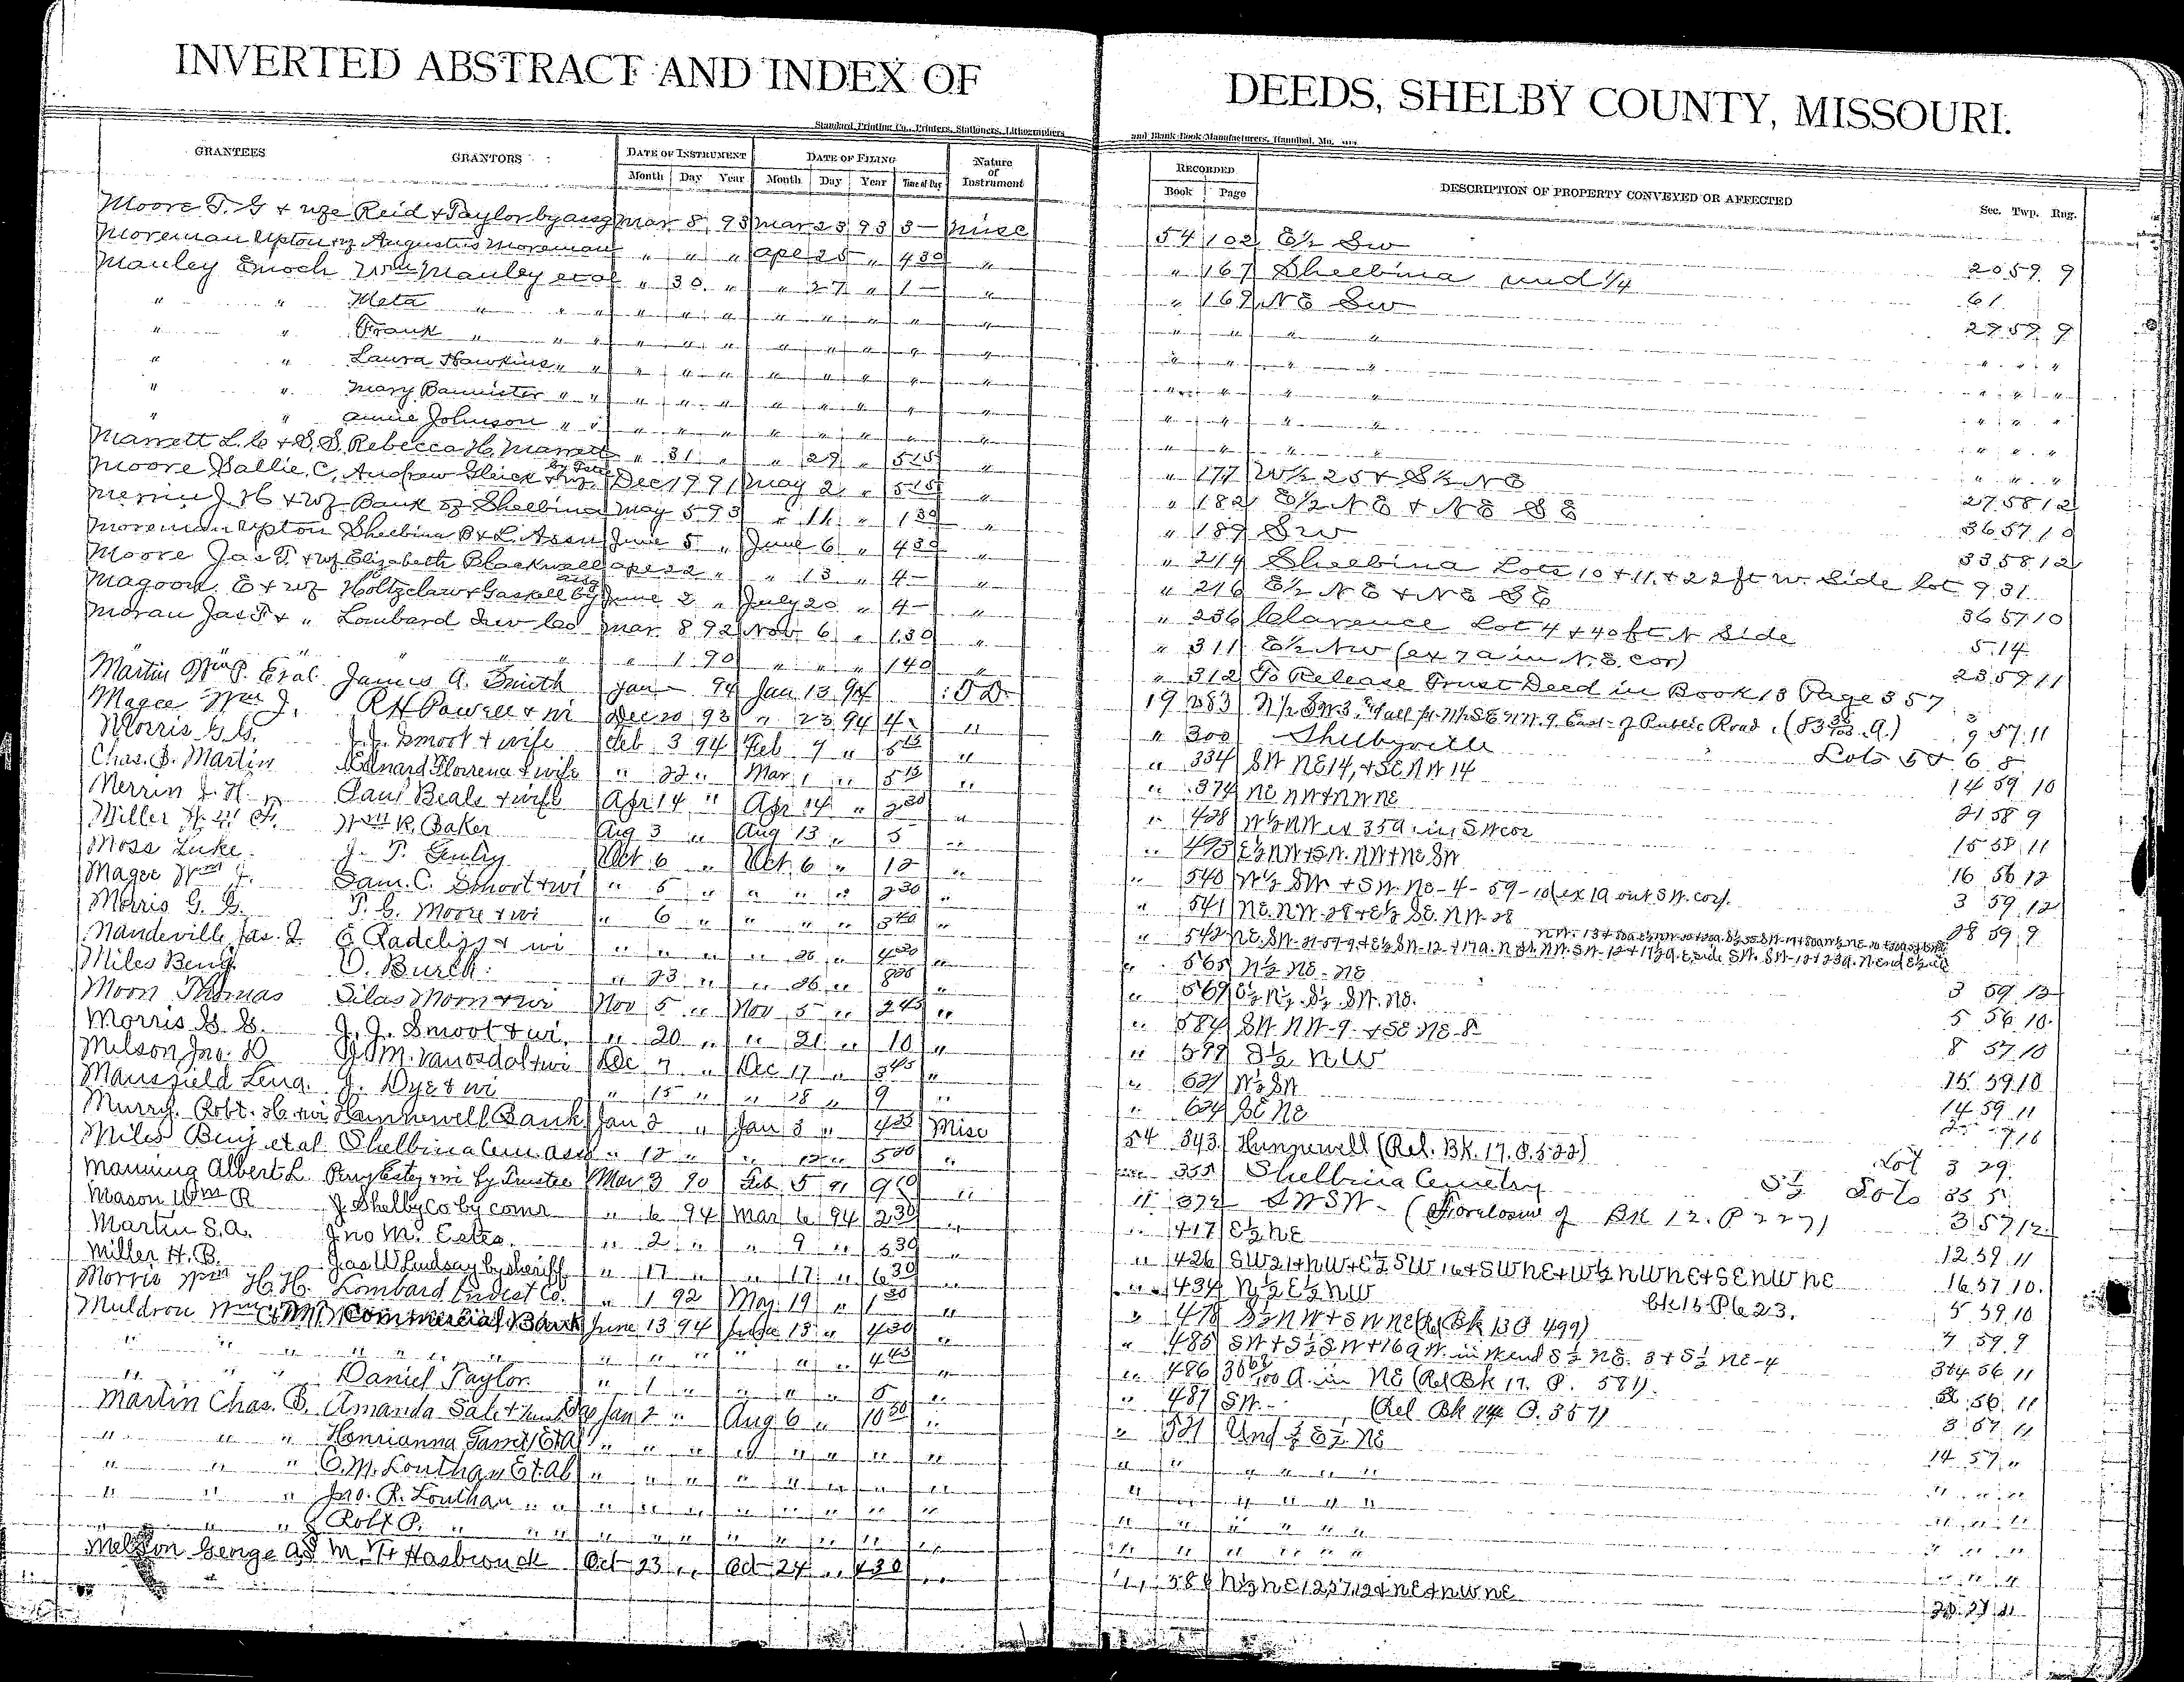 INVERTED ABSTRACT AND INDEX OF DEEDS, SHELBY COUNTY, MISSOURI.
Standard Printing Co., Printers, Stationers, Lithographers and Blank Book Manufacturers, Hannibal, Mo.
GRANTEES GRANTORS DATE OF INSTRUMENT DATE OF FILING Nature of Instrument RECORDED DESCRIPTION OF PROPERTY CONVEYED OR AFFECTED Sec. Twp. Rng.
Month Day Year Month Day Year Time of Day Book Page
Moore T. G & wife Reid & Taylor by assg Mar 8 93 Mar 23 93 3 - Misc 54 102 E½ SW 20 59 9
Moreman Upton by Augustus Moreman " " " Apl 25 " 430 " " 167 Shelbina und ¼ 61
Manley Enoch Wm Manley et al " 30 " " 27 " 1 - " " 169 NE SW 29 59 9
" " Meta " " " " " " " " " " " " " " " " " "
" " Frank " " " " " " " " " " " " " " " " " "
" " Laura Hawkins " " " " " " " " " " " " " " " " "
" " Mary Bannister " " " " " " " " " " " " " " " " "
" " Annie Johnson " " " " " " " " " " " " " " " " "
Marrett L. C & S. S. Rebecca H. Marrett " 31 " " 29 " 515 " " 177 W½ 25 & S½ NE 27 58 12
Moore Sallie C. Andrew Gleick & wf. by Trustee Dec 19 91 May 2 " 515 " " 182 E½ NE & NE SE 36 57 10
Merrin J. H & Wf Bank of Shelbina May 5 93 " 11 " 130 " " 189 SW 33 58 12
Moreman Upton Shelbina B & L Assn June 5 " June 6 " 430 " " 214 Shelbina Lots 10 & 11 & 22 ft W. Side Lot 9 31
Moore Jas T. & wf Elizabeth Blackwell Apl 22 " " 13 " 4 - " " 216 E½ NE & NE SE 36 57 10
Magoon E & wf Holtzclaw & Gaskell by assg June 2 " July 20 " 4 - " " 236 Clarence Lot 4 & 40 ft N Side 5 14
Moran Jas T & " Lombard Inv Co Mar. 8 92 Nov. 6 " 130 " " 311 E½ NW (ex 7 a in N. E. cor) 23 59 11
" " " " 1 90 " " " 140 " " 312 To Release Trust Deed in Book 13 Page 357
Martin Wm P. Et al. James A. Smith Jan - 94 Jan 13 94 T D. 19 283
Magee Wm J. R H Powell & wi Dec 20 93 " 23 94 4 - " " 300 Shelbyville Lots 5 & 6 8
Morris G. G. J. J. Smoot & wife Feb 3 94 Feb 9 " 515 " " 334 SW NE 14, & SE NW 14 14 59 10
Chas. B. Martin Edward Florrena & wife " 22 " Mar 1 " 515 " " 374 NE NW & NW NE 21 58 9
Merrin J. H. Paul Beals & wife Apr 14 " Apr 14 " 230 " " 428 W½ NW ex 35 a. in SW cor 15 58 11
Miller Wm R. Baker Aug 3 " Aug 13 " 5 " " 493 E½ NW & SW. NW & NE SW 16 56 12
Moss Luke J. T. Gentry Oct 6 " Oct 6 " 12 " " 540 W½ SW & SW. NE - 4 - 59 - 10 (ex 1 a out SW. cor). 3 59 12
Magee Wm J. Sam. C. Smoot & wi " 5 " " " " 230 " " 541 NE. NW - 28 & E½ SE. NW - 28 28 59 9
Morris G. G. T. C. Moore & wi " 6 " " " " 340 " " 542
Mandeville Jas. J. E Radcliff & wi " " " " 26 " 420 " " 565 N½ NE - NE 3 59 12
Miles Benj. O. Burch " 23 " " 26 " " 569 E½ N½ S½ SW. NE. 5 56 10
Moon Thomas Silas Moon & wi Nov 5 " Nov 5 " 245 " " 584 SW NW - 9 - & SE NE - 8 8 57 10
Morris G. G. J. J. Smoot & wi. " 20 " " 21 " 10 " " 599 S½ NW 15 59 10
Milson Jno. D J. M. Vanosdol & wi Dec 7 " Dec 17 " 345 " " 621 W½ SW 14 59 11
Mansfield Lena. J. Dye & wi " 15 " " 28 " 9 " " 624 SE NE
Murry. Robt. H. & wi Hunnewell Bank Jan 2 " Jan 3 " 420 Misc 54 343 Hunnewell (Rel. BK. 17. P. 522) Lot 3 29
Miles Benj et al Shelbina Cem assn " 12 " " 12 " 520 " " 355 Shelbina Cemetery S½ Lots 35 5
Manning Albert L. Perry Estes & wi by Trustee Mar 3 90 Feb 5 91 9 " " 372 SW SW - (Foreclosure of BK 12. P 227) 3 57 12
Mason Wm R J. Shelby Co by comr " 6 94 Mar 6 94 230 " " 417 E½ NE 12 59 11
Martin S. A. Jno M. Estes. " 2 " " 9 " 530 " " 426 SW 21 & NW & E½ SW 16 & SW NE & W½ NW NE & SE NW NE 16 57 10
Miller H. B. Jas W Lindsay by sheriff " 17 " " 17 " 630 " " 434 N½ E½ NW Bk 13 - P 623. 5 59 10
Morris Wm H. H. Lombard Invest Co. " 1 92 May 19 " 1 " " 478 S½ NW & SW NE (Rel Bk 13 P 499) 4 59 9
Muldrow Wm Commercial Bank June 13 94 June 13 " 430 " " 485 SW & S½ SW & 16 a W. in W end S½ NE. 3 & S½ NE - 4 3 & 4 56 11
" " " " " " " " " " " 445 " " 486 30 a. in NE (Rel Bk 17. P. 581). 56 11
" " " Daniel Taylor " 1 " " " " 5 " " 487 SW. - (Rel Bk 14 P. 357) 3 57 11
Martin Chas. B. Amanda Sale & husband Jan 2 " Aug 6 " 1030 " " 521 Und ½ E½ NE 14 57 "
" " " Henrianna Et Al " " " " " " " " " " " " " " " " "
" " " C. M. Louthan Et. Al. " " " " " " " " " " " " " " " " "
" " " Jno. R. Louthan " " " " " " " " " " " " " " " " " " "
" " " Robt P. " " " " " " " " " " " " " " " " " " " "
George M. H Hasbrouck Oct 23 " Oct 24 " 430 " " 586 N½ NE 12, 57, 12 & NE & NW NE